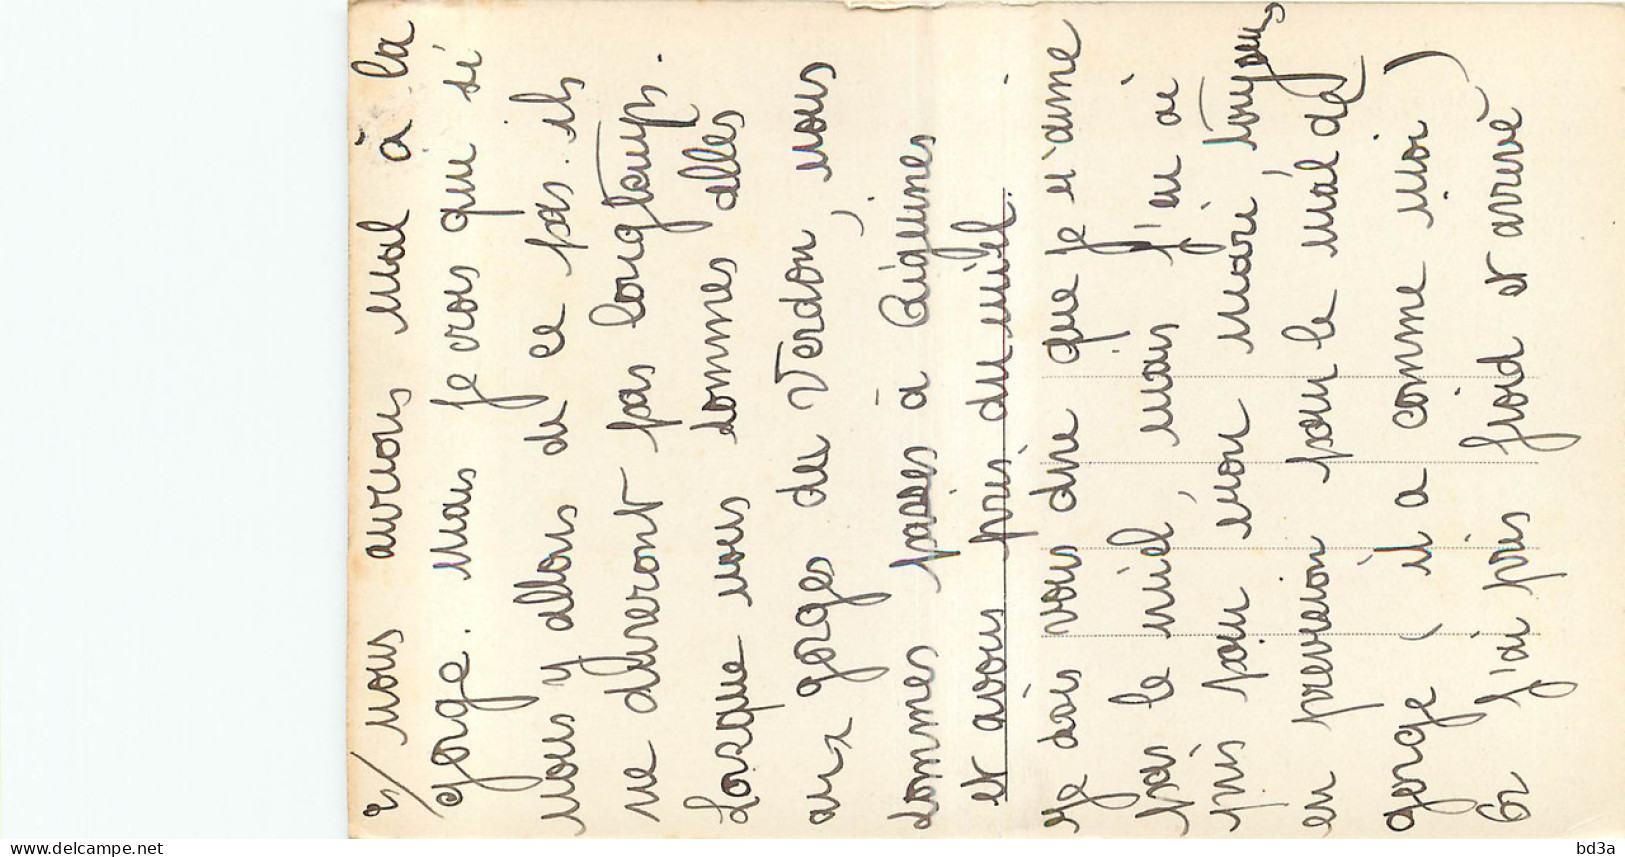 2/ nous avions mal à la
gorge. mais je crois que si
nous y allons de ce pas. ils
ne dureront pas longtemps.
Lorsque nous sommes allés
aux gorges du Verdon, nous
sommes passés à Aiguines
et avons pris du miel.
Je dois vous dire que je n'aime
pas le miel, mais j'en ai
pris pour mon mari, toujours
en prevision pour le mal de
gorge ( il a comme moi )
Or j'ai pris froid et arrivé
bd3a